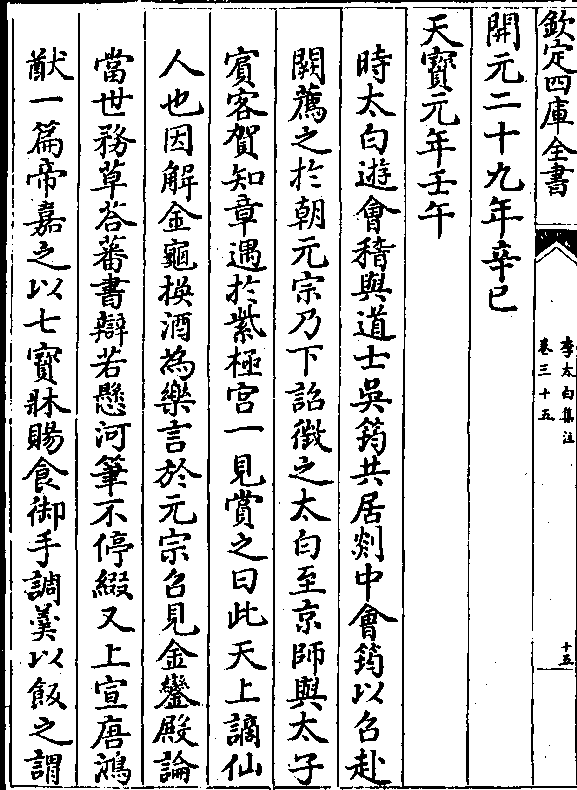 欽定四庫全書
李太白集注
卷三十五
十五
開元二十九年辛巳
天寶元年壬午
時太白遊會稽與道士吳筠共居剡中會筠以召赴
闕薦之於朝元宗乃下詔徵之太白至京師與太子
賓客賀知章遇於紫極宮一見賞之曰此天上謫仙
人也因解金龜換酒為樂言於元宗召見金鑾殿論
當世務草荅蕃書辯若懸河筆不停綴又上宣唐鴻
猷一篇帝嘉之以七寶牀賜食御手調羹以飯之謂